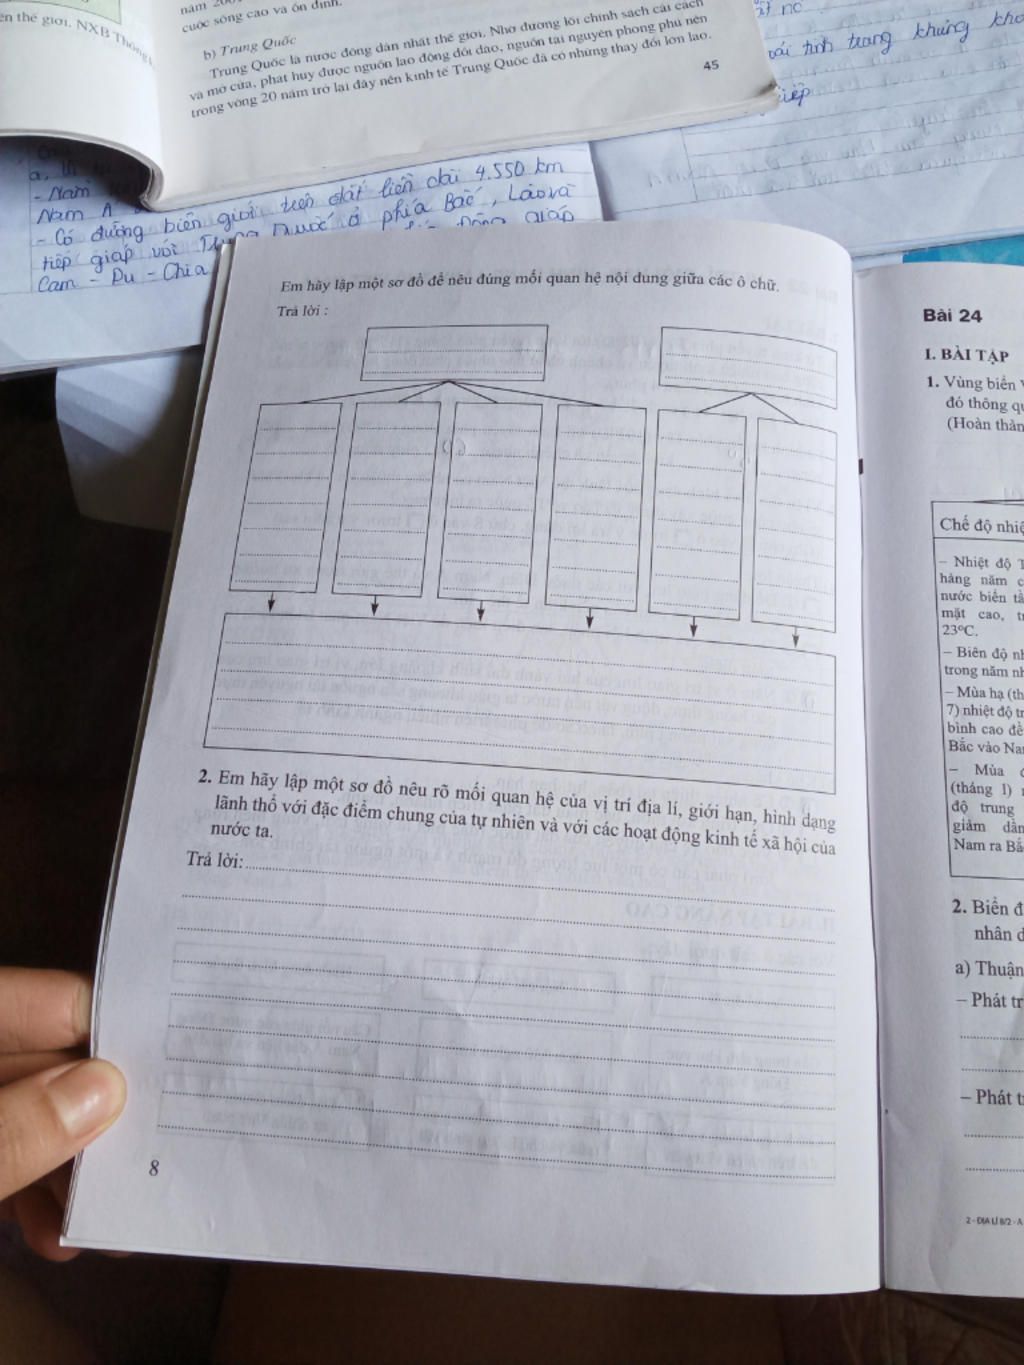 ên thế giới, NXB Thống
năm 200
cuộc sống cao và ổn định.
b) Trung Quốc
Trung Quốc là nước đông dân nhất thế giới. Nhờ đường lối chính sách cải cách
và mở cửa, phát huy được nguồn lao động dồi dào, nguồn tài nguyên phong phú nên
trong vòng 20 năm trở lại đây nền kinh tế Trung Quốc đã có những thay đổi lớn lao.
45
với tình trạng khủng kho
iệp
- Nam
Nam Á,
- Có đường biên giới trên đất liền dài 4.550 km
tiếp giáp với Trung Quốc ở phía Bắc, Lào và
Cam - Pu - Chia
Em hãy lập một sơ đồ để nêu đúng mối quan hệ nội dung giữa các ô chữ.
Trả lời :
2. Em hãy lập một sơ đồ nêu rõ mối quan hệ của vị trí địa lí, giới hạn, hình dạng
lãnh thổ với đặc điểm chung của tự nhiên và với các hoạt động kinh tế xã hội của
nước ta.
Trả lời:
8
Bài 24
I. BÀI TẬP
1. Vùng biển
đó thông qu
(Hoàn thàn
Chế độ nhiệ
– Nhiệt độ T
hàng năm c
nước biển tầ
mặt cao, tr
23°C.
– Biên độ nh
trong năm nh
– Mùa hạ (th
7) nhiệt độ tr
bình cao đề
Bắc vào Na
– Mùa đ
(tháng 1) n
độ trung
giảm dần
Nam ra Bắ
2. Biển đ
nhân d
a) Thuận
– Phát tr
– Phát t
2 - ĐỊA LÍ 8/2 - A